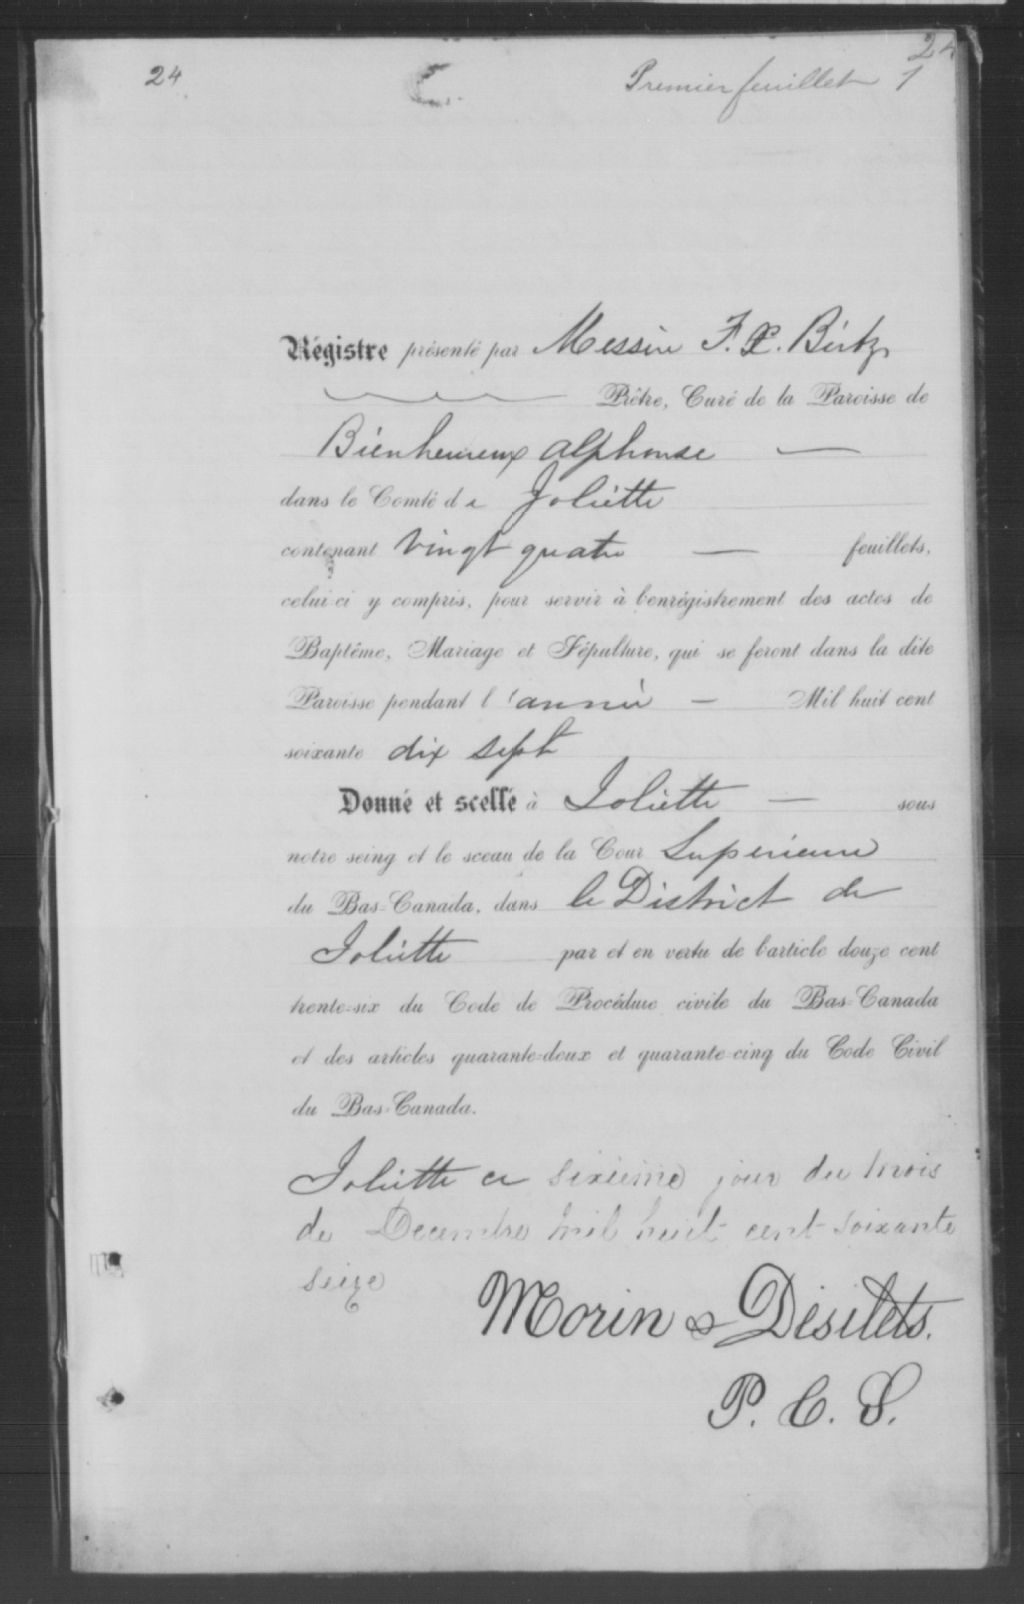 24
24
Premier feuillet 1
Régistre présenté par Messire F. X. Bértz,
Prêtre, Curé de la Paroisse de
Bienheureux Alphonse —
dans le Comté de Joliette
contenant vingt quatre — feuillets,
celui-ci y compris, pour servir à l'enrégistrement des actes de
Baptême, Mariage et Sépulture, qui se feront dans la dite
Paroisse pendant l'année — Mil huit cent
soixante dix sept
Donné et scellé à Joliette — sous
notre seing et le sceau de la Cour Superieure
du Bas-Canada, dans le District de
Joliette par et en vertu de l'article douze cent
trente-six du Code de Procédure civile du Bas-Canada
et des articles quarante-deux et quarante-cinq du Code Civil
du Bas-Canada.
Joliette ce sixième jour du mois
de Decembre mil huit cent soixante
seize
Morin & Désilets.
P. C. S.